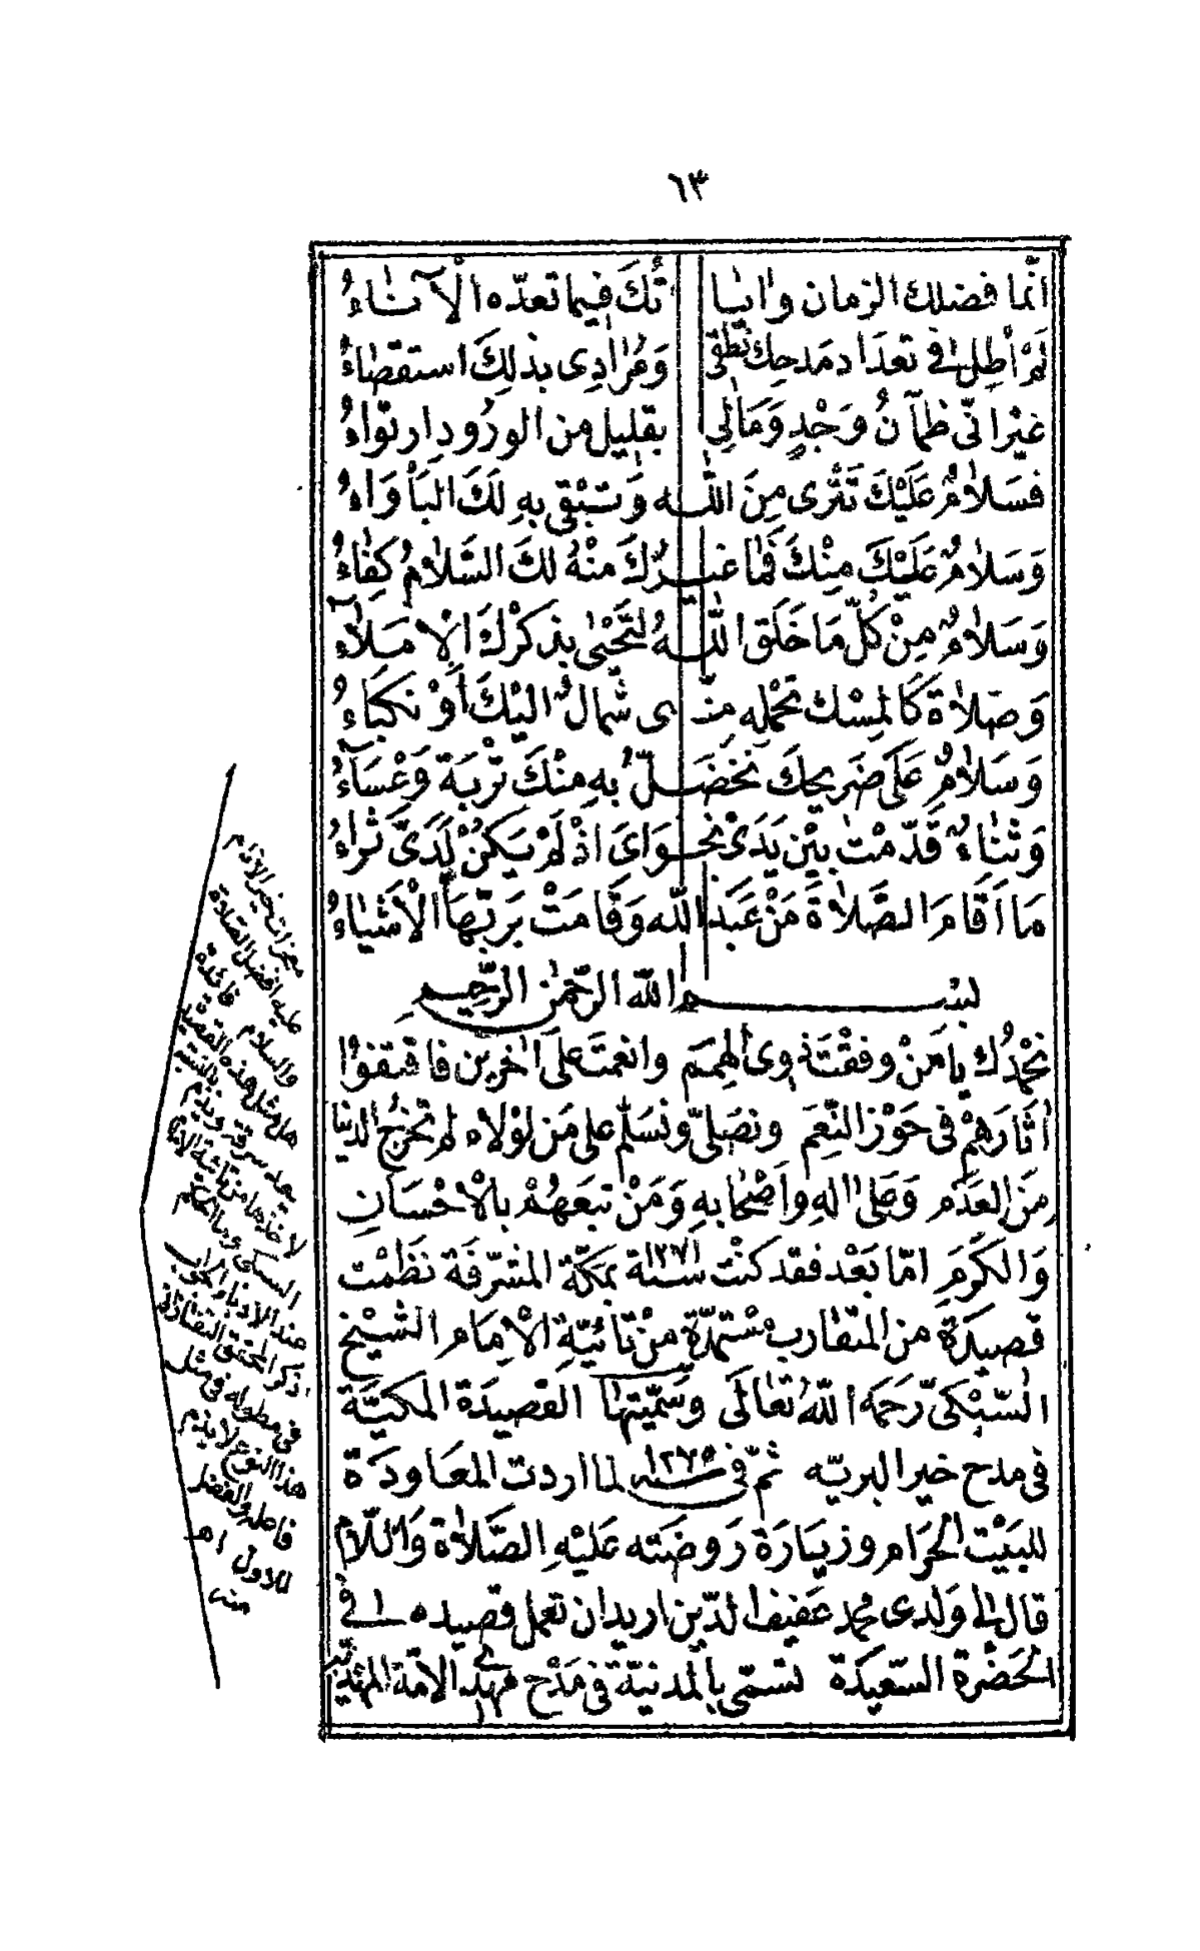 ٦٣
انّما فضلك الزمان واٰيا تُكَ فيما تعدّه الْآناءُ
لَمْ أُطِلْ فى تعدَاد مَدحِك نُطْقى وَمُرادِى بذٰلِكَ استقصَاءُ
غيْرانّى ظمآنُ وَجْدٍ وَمَالِى بقليل من الورُودِ ارتوَاءُ
فسَلاٰمٌ عَلَيْكَ تَتْرى مِنَ اللّٰه وَتبْقى بهِ لَكَ البَأوَاءُ
وَسَلاٰمٌ عَلَيْكَ مِنْكَ فما غيْرُكَ منْهُ لكَ السَّلاٰمُ كِفَاءُ
وَسَلاٰمٌ مِنْ كُلّ مَا خَلَق اللّٰهُ لتَحْيٰى بذكرْكَ الْامَلآءُ
وَصَلاٰة كَالمِسْك تحْمله منّى شَمالٌ اليْكَ أَوْ نَكبَاءُ
وَسَلاٰمٌ عَلَى ضَريحِكَ تخضَلّ بهِ مِنْكَ تُرْبَة وَعْسَاءُ
وَثنَاءٌ قَدّمْتُ بيْن يَدَىْ نجوَاىَ اذْ لَمْ يَكنْ لَدَىَّ ثراءُ
مَا اَقَامَ الصَّلاٰةَ مَنْ عَبَدَ اللّٰه وَقَامَتْ بَربّهَا الْأشْيَاءُ
بسْم اللّٰه الرّحمٰن الرّحيم
نحْمدُك يا مَنْ وفقْتَ ذوى الهِمَم وانعمْتَ علَى اٰخرين فاقتفوْا
اٰثارَهمْ فى حَوْز النِّعَم ونصَلّى ونُسَلّم على مَن لوْلاه لم تخرُج الدنيا
مِنَ العَدَم وَعَلىٰ اٰلهِ وأَصْحَابهِ وَمَنْ تبعَهُمْ بالْاحْسَان
وَالكَرَمِ امّا بَعْد فقد كنْت سنة ١٢٧١ بمكّة المشرّفَة نظَمْت
قصيدَة من المتقارب مسْتمدّة منْ تائيّة الْامَام الشيْخ
السّبْكىّ رَحمَه اللّٰه تعَالَى وَسمّيتهَا القصِيدَة المكيَّة
فى مدح خير البريّه ثمّ فى سنة ١٢٧٥ لما اردت المعَاودَة
للبَيْت الحرَام وزيَارَة رَوضَته عَليْهِ الصَّلاٰة وَالسّلاٰم
قال لى وَلدى محمد عَفيف الدّين اريد ان تعمل قصيده لى فى
الحَضْرة السّعيدَة تسَمّى بالمدنيّة فى مَدْح مهدى الامّة المهديّة
معجزات خير الانام
عليه افضل الصلاة
والسلام فائدة
هل مثل هذه القصيدة
يعد سرقة ويذم
لاخذها من تائية الامام
السبكى
عند الادباء الجواب
ذكر المحقق التفتازانى
فى مطوله فى مثل
هذا النوع لا يذم
فاعله والفضل
للاول اه
منه